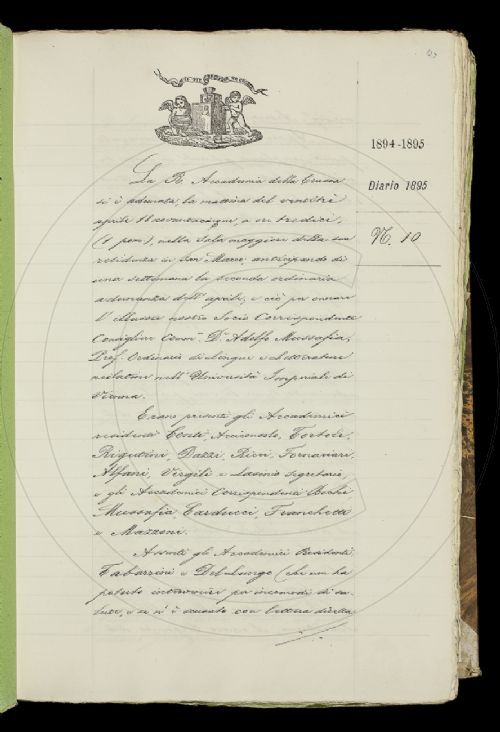 1894-1895
Diario 1895
N. 10
La R. Accademia della Crusca
si è adunata, la mattina del ventitré
aprile 1895, a ore tredici,
(1 pom.), nella Sala maggiore della sua
residenza in San Marco anticipando di
una settimana la seconda ordinaria
adunanza dell' aprile, e ciò per onorare
l' illustre nostro Socio Corrispondente
Consigliere Comm. D. Adolfo Mussafia,
Prof. Ordinario di Lingue e Letterature
neolatine nell' Università Imperiale di
Vienna.
Erano presenti gli Accademici
residenti Conti, Tortoli,
Rigutini, Dazzi, Ricci, Tornaciari,
Alfani, Virgili e Lasinio segretario,
e gli Accademici Corrispondenti
Mussafia, Carducci, Franchetti
e Mazzoni.
Assenti gli Accademici Residenti
Tabarrini e Del Lungo (che non ha
potuto intervenire per incomodi di sa-
lute, e se n' è scusato con lettera diretta